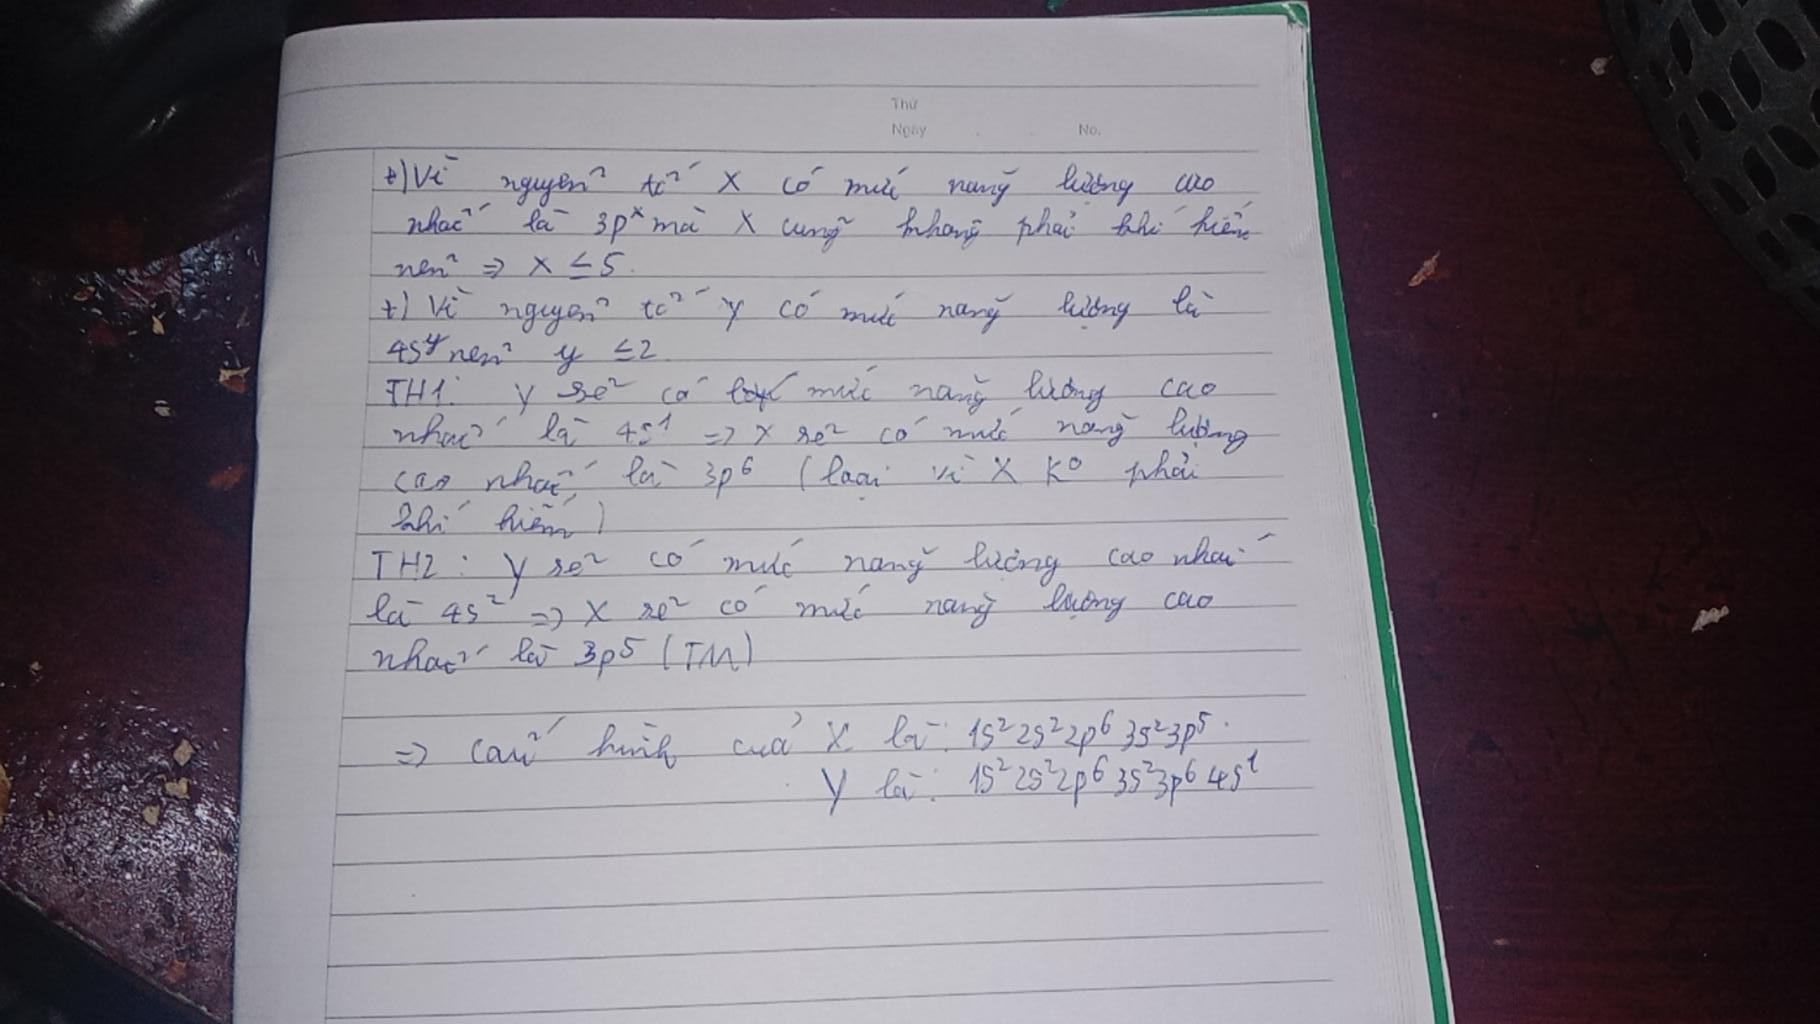 Thứ
Ngày No.
+) Vì nguyên tố X có mức năng lượng cao
nhất là 3pˣ mà X cũng không phải khí hiếm
nên => x ≤ 5.
+) Vì nguyên tố Y có mức năng lượng là
4sʸ nên y ≤ 2
TH1: Y sẽ có mức năng lượng cao
nhất là 4s¹ => X sẽ có mức năng lượng
cao nhất là 3p⁶ (loại vì X K⁰ phải
khí hiếm)
TH2: Y sẽ có mức năng lượng cao nhất
là 4s² => X sẽ có mức năng lượng cao
nhất là 3p⁵ (TM)
=> cấu hình của X là: 1s²2s²2p⁶3s²3p⁵.
Y là: 1s²2s²2p⁶3s²3p⁶4s¹